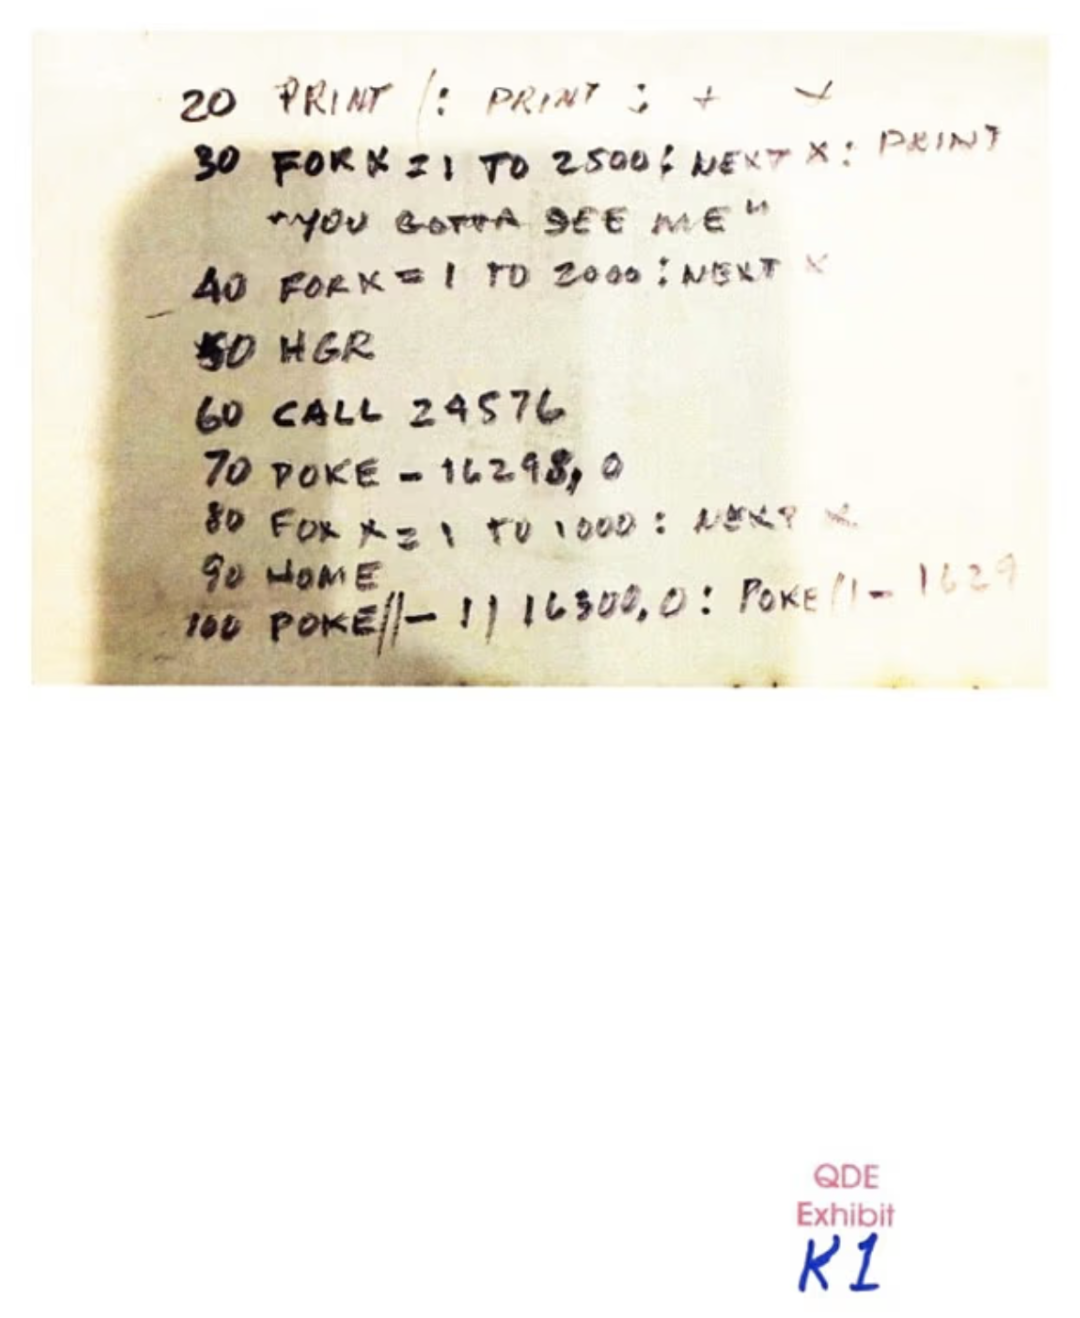 20 PRINT /: PRINT : + +
30 FOR X = 1 TO 2500: NEXT X: PRINT
"YOU GOTTA SEE ME"
40 FOR X = 1 TO 2000: NEXT X
50 HGR
60 CALL 24576
70 POKE - 16298, 0
80 FOR X = 1 TO 1000: NEXT X
90 HOME
100 POKE//- 1) 16300,0: POKE //- 1629
QDE
Exhibit
K1